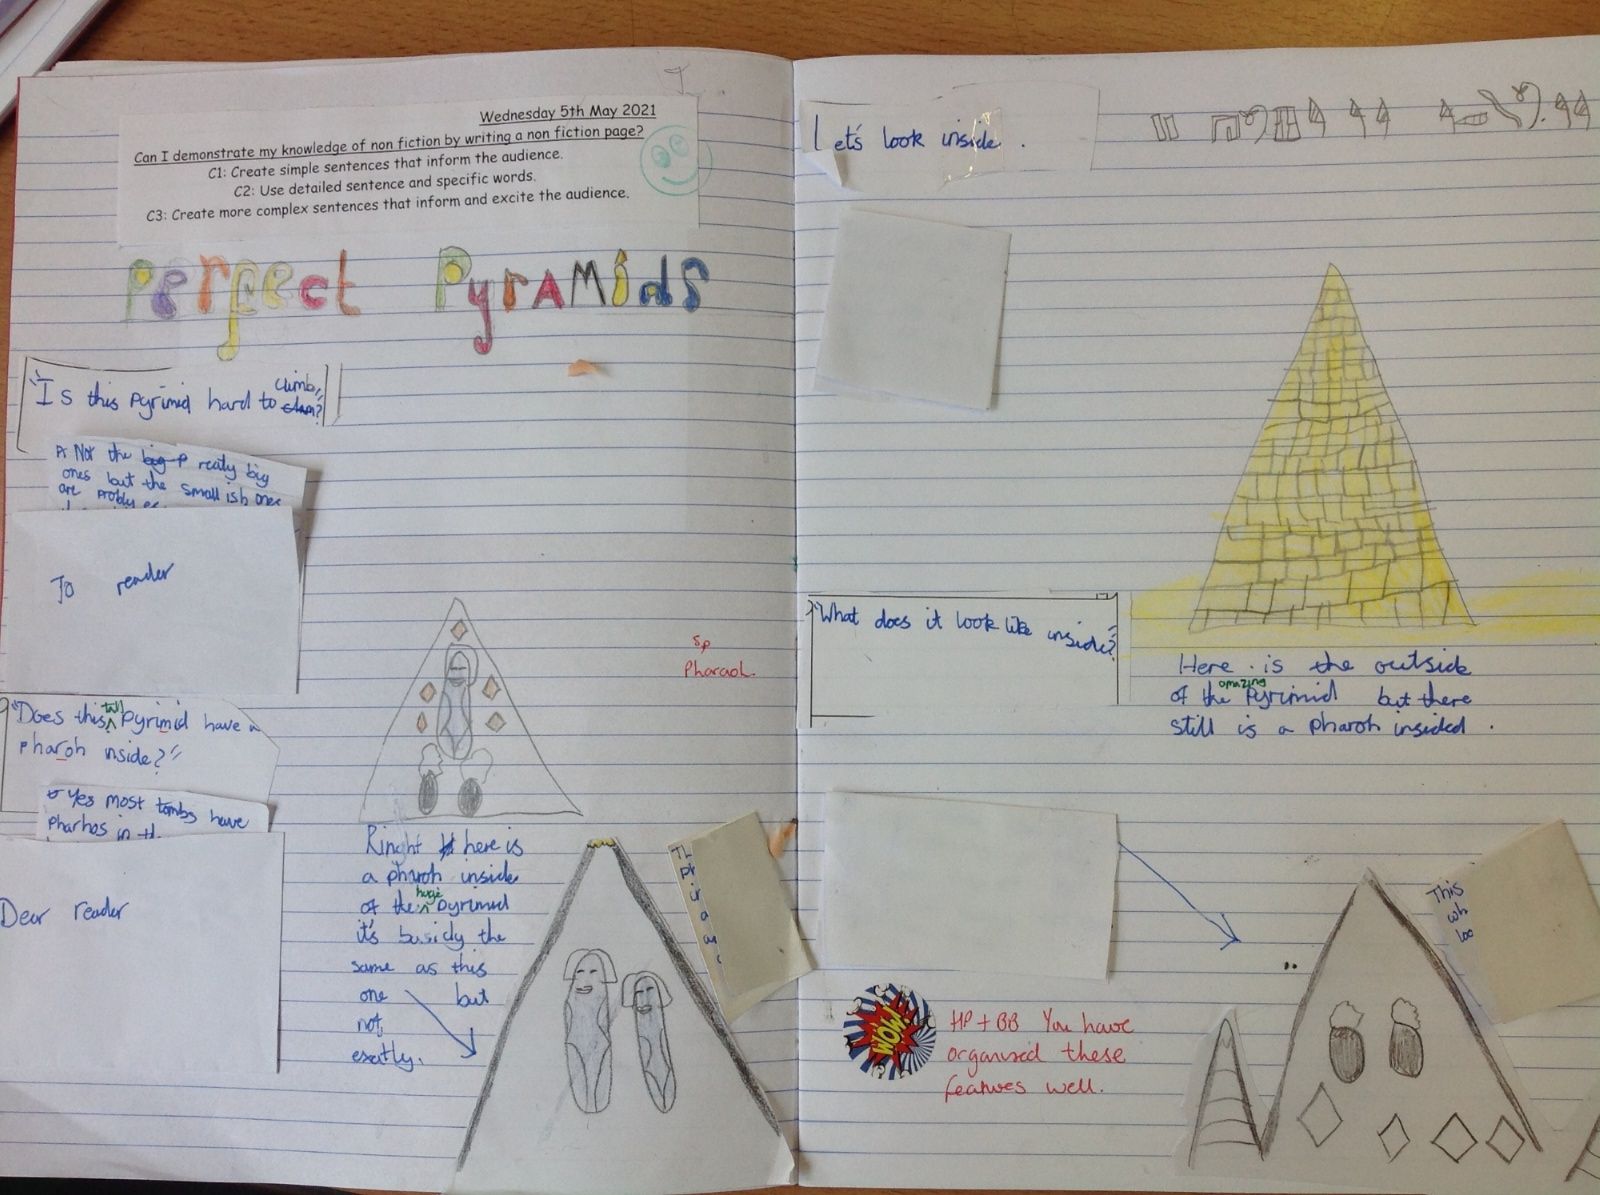 Wednesday 5th May 2021
Can I demonstrate my knowledge of non fiction by writing a non fiction page?
C1: Create simple sentences that inform the audience.
C2: Use detailed sentence and specific words.
C3: Create more complex sentences that inform and excite the audience.
Perfect Pyramids
"Is this Pyrimid hard to climb,"?
A Not the big P really big
ones but the small ish ones
are probly
To reader
"Does this tall Pyrimid have a
pharoh inside?"
Yes most tombs have
pharhos in
Dear reader
sp
Pharaoh.
Ringht here is
a pharoh inside
of the huge pyrimid
it's basicly the
same as this
one but
not
exatly.
Let's look inside.
"What does it look like inside?"
Here is the outside
of the amazing Pyrimid but there
still is a pharoh insided.
This
wh
loo
WOW!
HP + BB You have
organised these
features well.